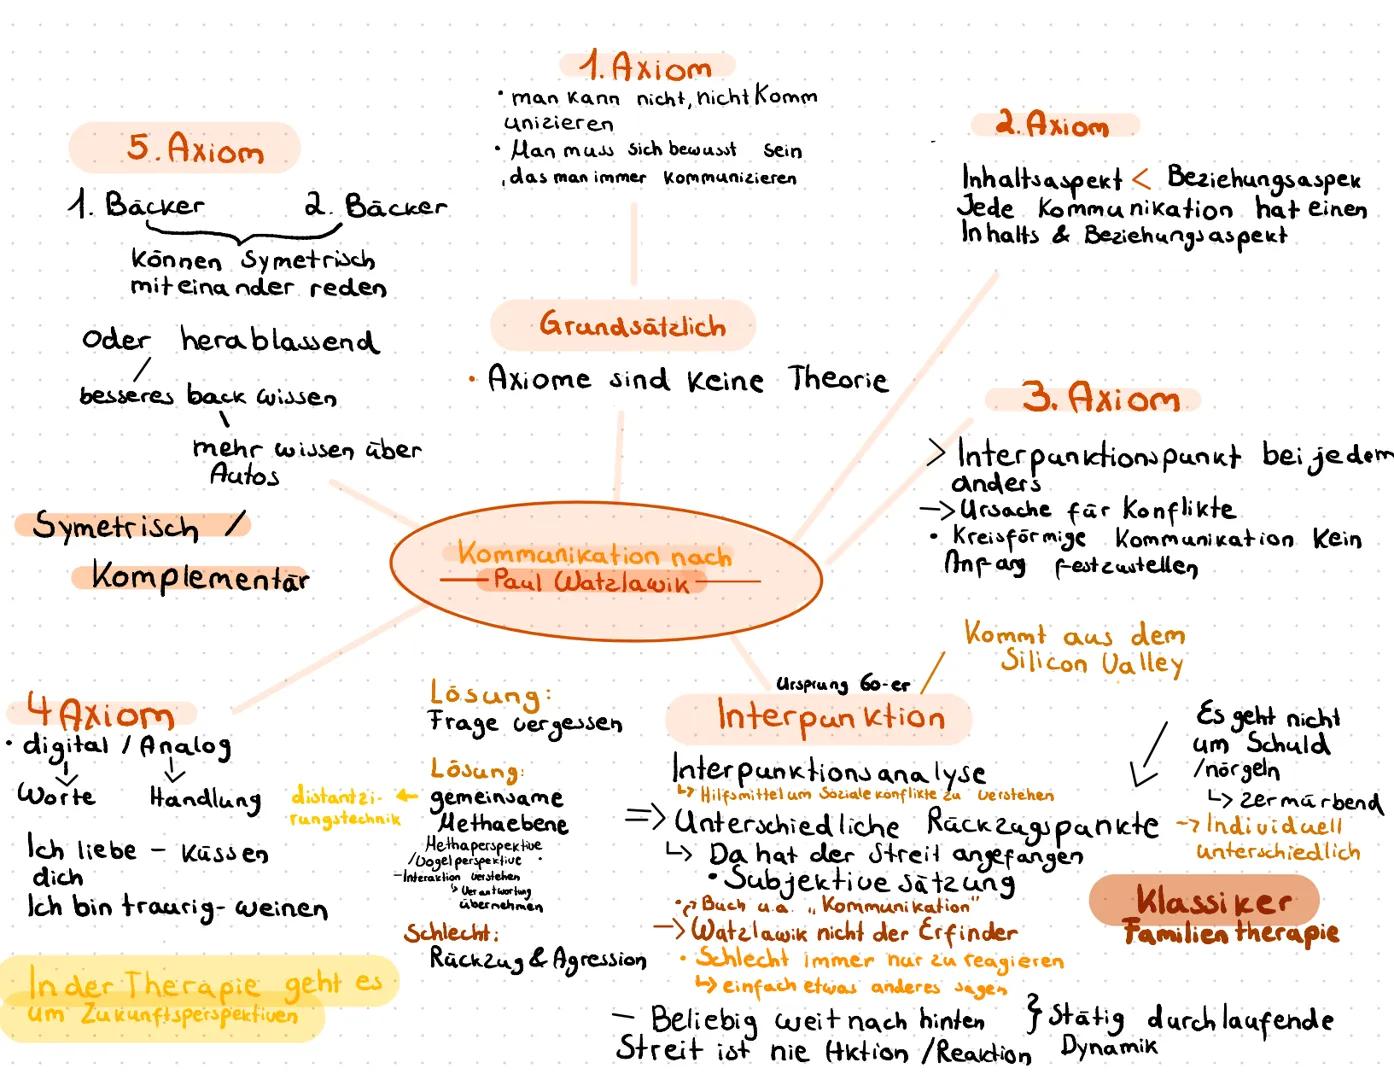 1. Axiom
• man kann nicht, nicht Komm
unizieren
• Man muss sich bewusst sein
, das man immer kommunizieren
2. Axiom
Inhaltsaspekt < Beziehungsaspek
Jede Kommunikation hat einen
Inhalts & Beziehungsaspekt
5. Axiom
1. Bäcker 2. Bäcker
können Symetrisch
miteinander reden
oder herablassend
besseres back wissen
mehr wissen über
Autos
Symetrisch /
Komplementär
Grundsätzlich
• Axiome sind keine Theorie
3. Axiom
> Interpunktionspunkt bei jedem
anders
-> Ursache für Konflikte
• Kreisförmige Kommunikation kein
Anfang festzustellen
Kommunikation nach
Paul Watzlawik
4 Axiom
• digital / Analog
Worte Handlung
Ich liebe - küssen
dich
Ich bin traurig - weinen
In der Therapie geht es
um Zukunftsperspektiven
Lösung:
Frage vergessen
Lösung:
gemeinsame
Methaebene
Methaperspektive
/Vogelperspektive
- Interaktion verstehen
↳ Verantwortung
übernehmen
distantzi-
rungstechnik
Schlecht:
Rückzug & Agression
Kommt aus dem
Silicon Valley
Ursprung 60-er
Interpunktion
Interpunktionsanalyse
↳ Hilfsmittel um Soziale konflikte zu verstehen
=> Unterschiedliche Rückzugspunkte
↳ Da hat der Streit angefangen
• Subjektive sätzung
• Buch u.a. „Kommunikation"
-> Watzlawik nicht der Erfinder
• Schlecht immer nur zu reagieren
↳ einfach etwas anderes sagen
- Beliebig weit nach hinten
Streit ist nie Aktion / Reaktion
} Stätig durchlaufende
Dynamik
Es geht nicht
um Schuld
/nörgeln
↳ zermürbend
-> Individuell
unterschiedlich
Klassiker
Familientherapie